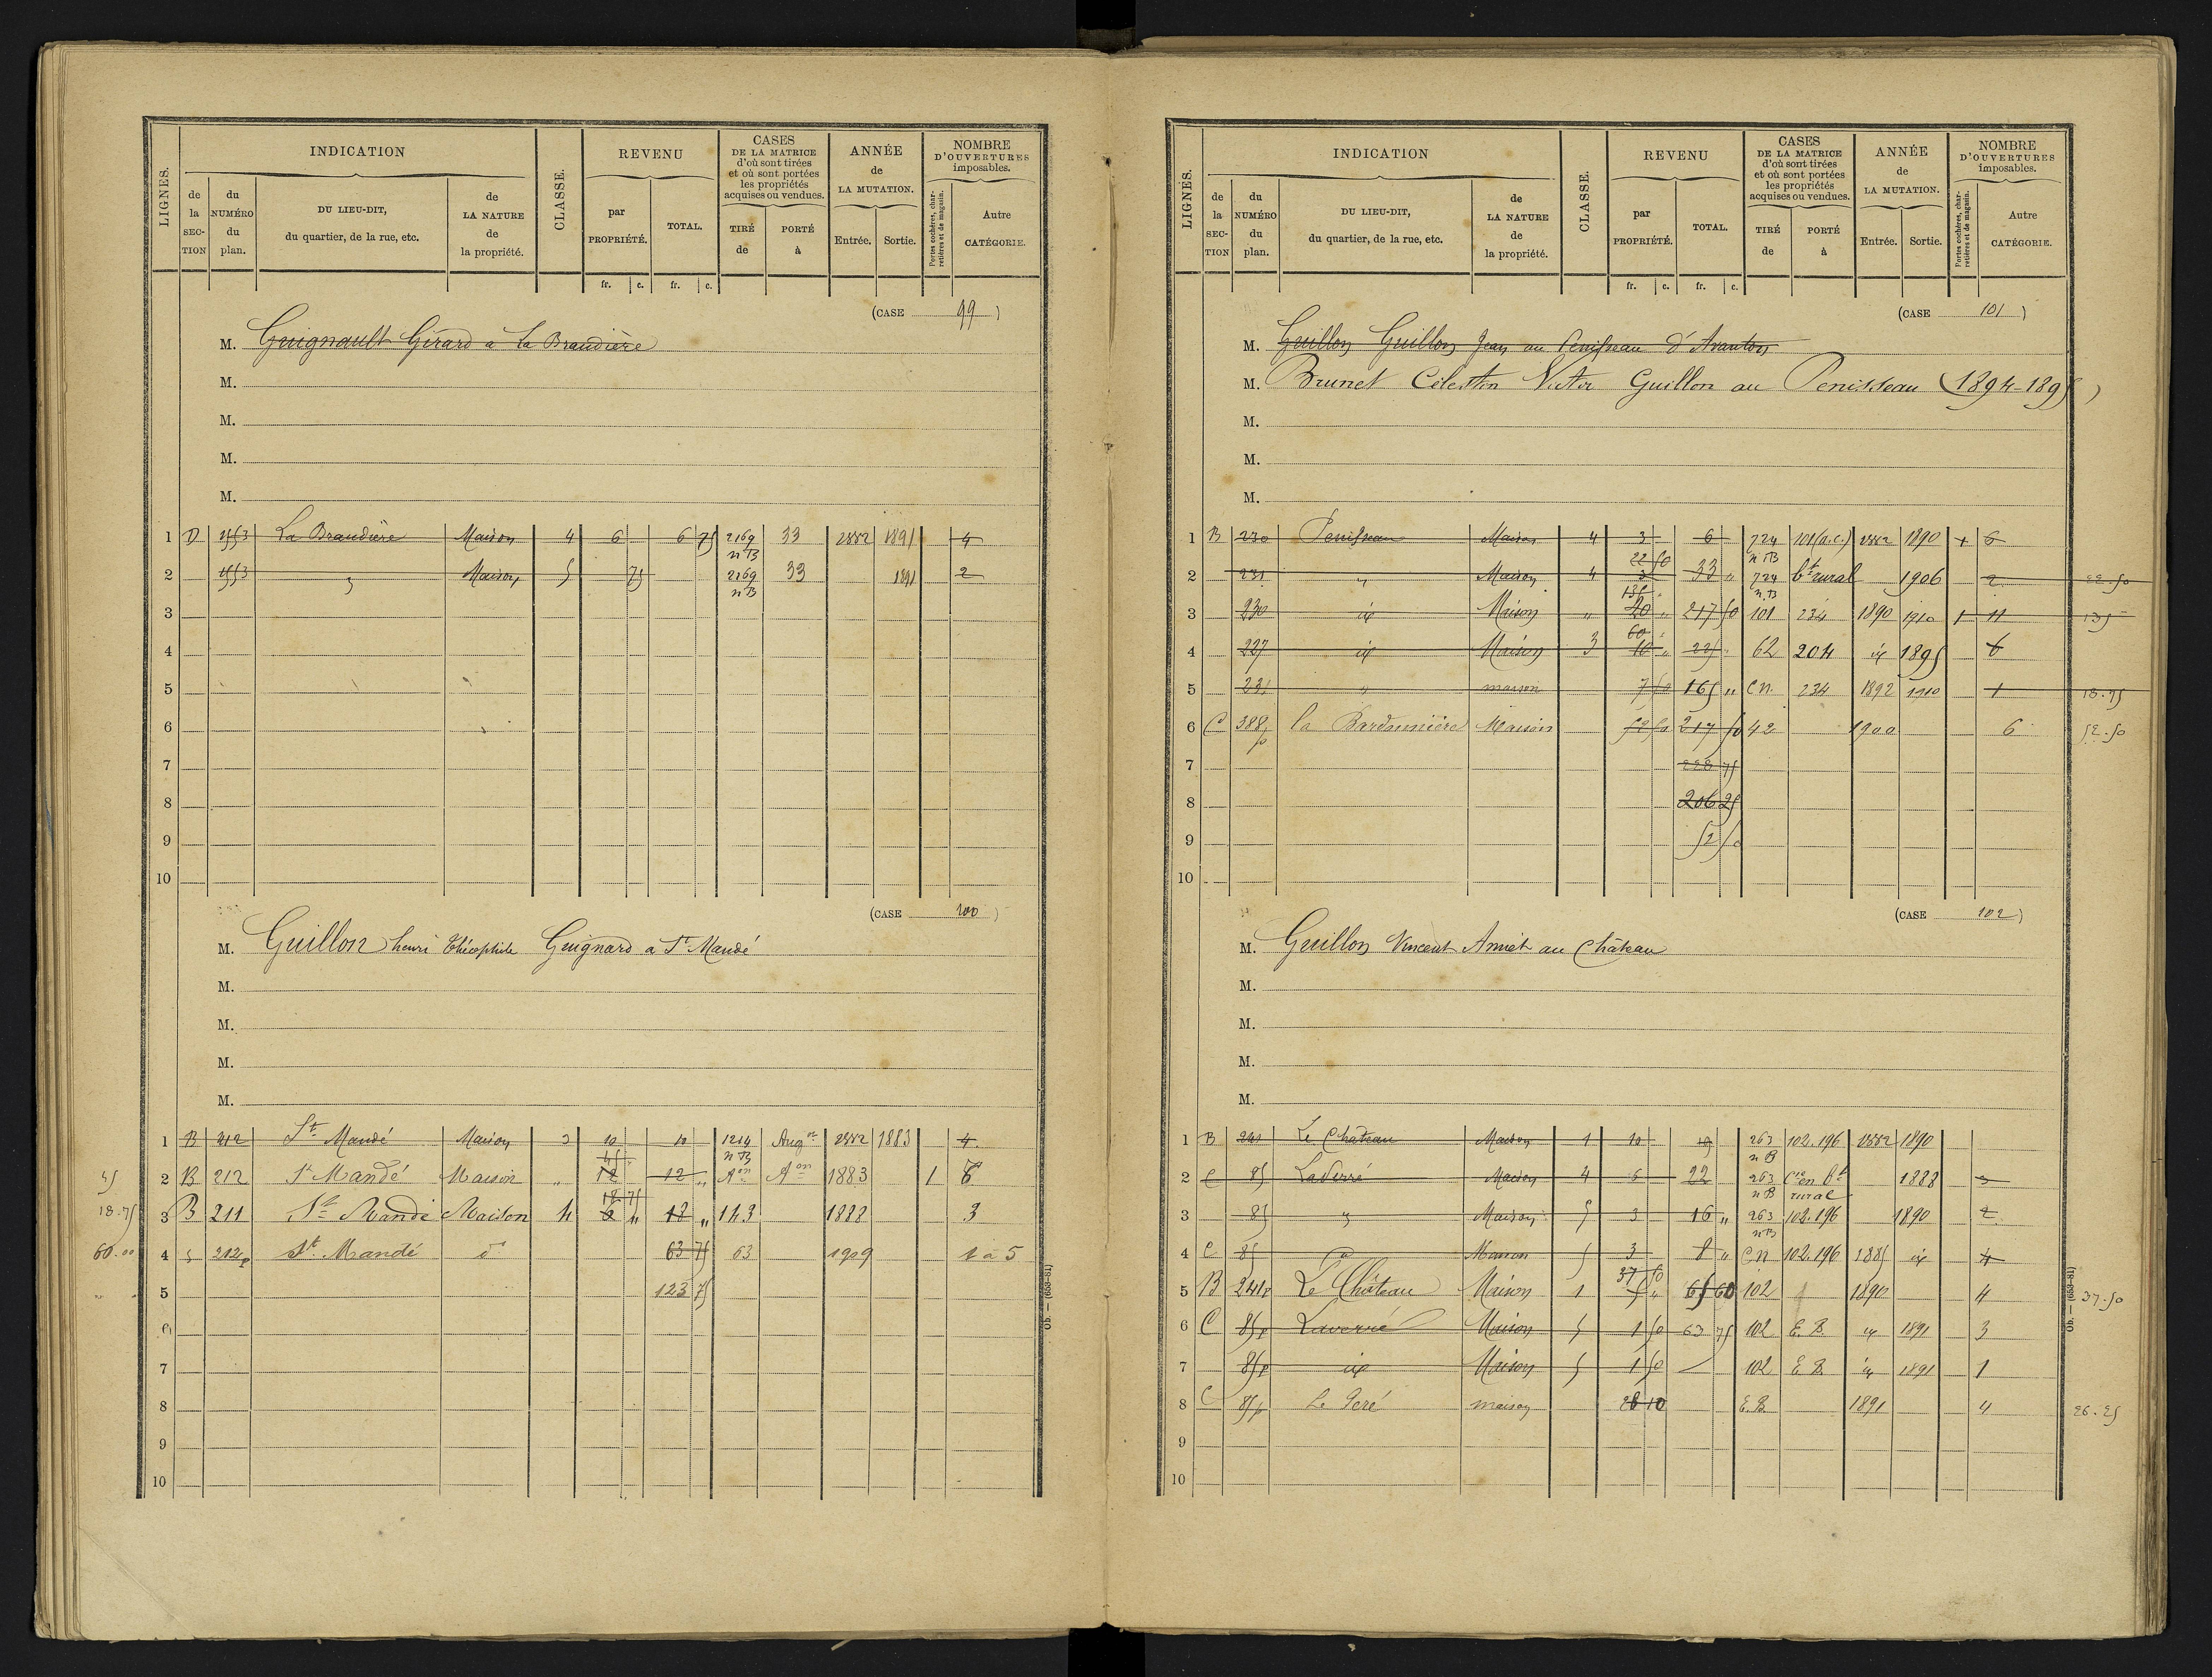 LIGNES. INDICATION CLASSE. REVENU CASES DE LA MATRICE d'où sont tirées et où sont portées les propriétés acquises ou vendues. ANNÉE de LA MUTATION. NOMBRE D'OUVERTURES imposables.
de la SECTION du NUMÉRO du plan. DU LIEU-DIT, du quartier, de la rue, etc. de LA NATURE de la propriété. par PROPRIÉTÉ. TOTAL. TIRÉ de PORTÉ à Entrée. Sortie. Portes cochères, charretières et de magasin. Autre CATÉGORIE.
fr. c. fr. c.
(CASE 99)
M. Guignault Girard a la Braudière
M.
M.
M.
M.
1 D 1553 La Braudière Maison 4 6 6 75 2169 n B 33 1882 1891 4
2 1553 " Maison 5 75 2169 n B 33 1891 2
3
4
5
6
7
8
9
10
(CASE 100)
M. Guillon henri Théophile Guignard a St Mandé
M.
M.
M.
M.
1 B 212 St Mandé Maison 3 10 10 1214 n B Augon 1882 1883 4
45 2 B 212 St Mandé Maison " 12 45 12 " Aon Aon 1883 1 6
18.75 3 B 211 Ste Mandé Maison 4 6 " 18 75 18 " 143 1888 3
60.00 4 212p St Mandé do 63 75 63 1909 1 a 5
5 123 75
6
7
8
9
10
Ob. — (653-81)
LIGNES. INDICATION CLASSE. REVENU CASES DE LA MATRICE d'où sont tirées et où sont portées les propriétés acquises ou vendues. ANNÉE de LA MUTATION. NOMBRE D'OUVERTURES imposables.
de la SECTION du NUMÉRO du plan. DU LIEU-DIT, du quartier, de la rue, etc. de LA NATURE de la propriété. par PROPRIÉTÉ. TOTAL. TIRÉ de PORTÉ à Entrée. Sortie. Portes cochères, charretières et de magasin. Autre CATÉGORIE.
fr. c. fr. c.
(CASE 101)
M. Guillon Guillon Jean au Penisseau d'Avanton
M. Brunet Célestin Victor Guillon au Penisseau (1894-1895)
M.
M.
M.
1 B 230 Penisseau Maison 4 3 6 724 n B 101 (a.c.) 1882 1890 + 6
2 231 " Maison 4 22 50 3 33 " 724 n.B bt rural 1906 2 22.50
3 230 id Maison " 135 20 " 217 50 101 234 1890 1910 1 11 135
4 227 id Maison 3 60 10 " 225 " 62 204 id 1895 6
5 231 " maison 7 50 165 " C n. 234 1892 1910 1 18.75
6 C 388p la Bardonnière Maison 52 50 217 50 42 1900 6 52.50
7 228 75
8 206 25
9 52 50
10
(CASE 102)
M. Guillon Vincent Amiet au Château
M.
M.
M.
M.
1 B 241 Le Château Maison 1 10 19 263 n B 102.196 1882 1890
2 C 85 Laverré Maison 4 6 22 263 n B Cie en bt rural 1888 3
3 85 " Maison 5 3 16 " 263 n B 102.196 1890 2
4 C 85 Maison 5 3 8 " C n 102.196 1885 id 4
5 B 241p Le Château Maison 1 37 50 5 " 65 60 102 1890 4 37.50
6 C 85p Laverré Maison 5 1 50 63 75 102 E. B. id 1891 3
7 85p id Maison 5 1 50 102 E B. id 1891 1
8 C 85p Le Peré maison 10 E.B. 1891 4 26.25
9
10
Ob. — (653-81)